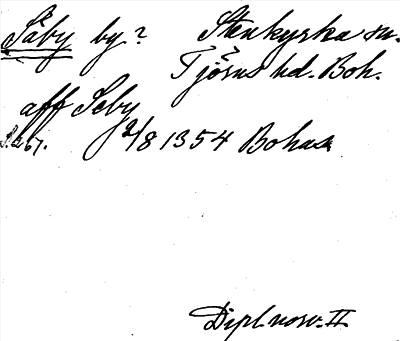 Säby by? Stenkyrka sn.
Tjörns hd. Boh.
aff Seby
S. 267. 2/8 1354 Bohus
Dipl. norv. II